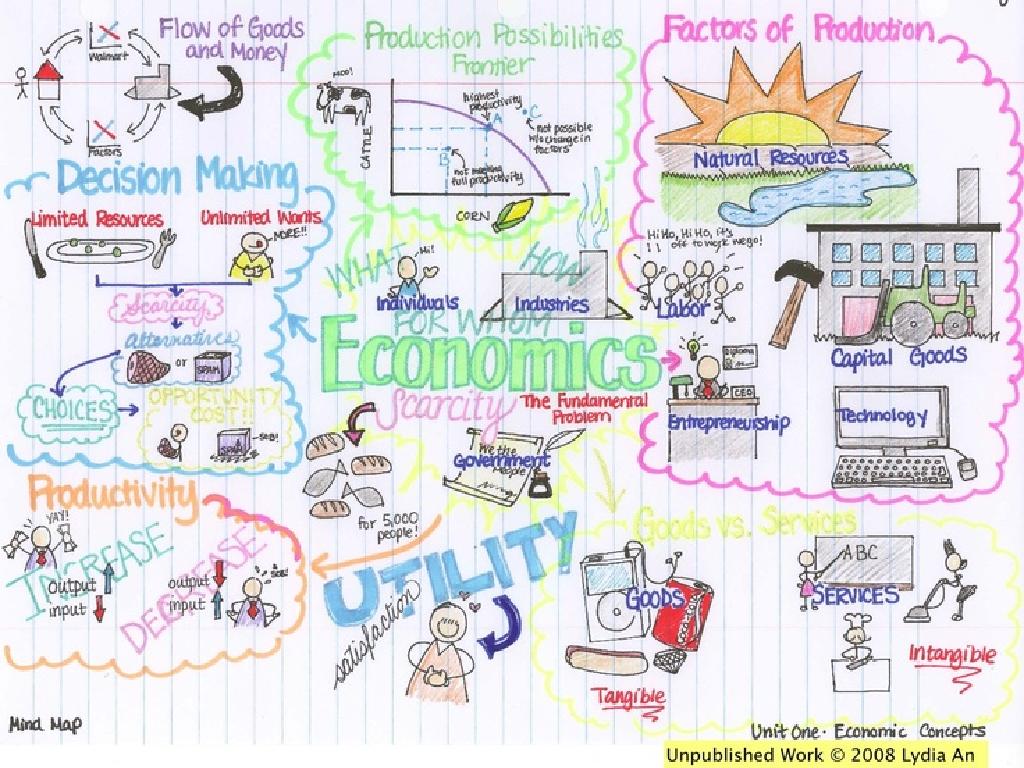 Flow of Goods
and Money
Walmart
Factors
Production Possibilities
Frontier
MOO!
CATTLE
highest
productivity
A
C
not possible
w/o change in
factors
B
not reaching
full productivity
CORN
Factors of Production
Natural Resources
Hi Ho, Hi Ho, it's
off to work we go!
Labor
Capital Goods
Diploma
CEO
Entrepreneurship
Technology
Decision Making
Limited Resources
Unlimited Wants
MORE!!
Scarcity
Alternatives
or
SPAM
CHOICES
OPPORTUNITY
COST!!
SPAM
SOB!
WHAT
HOW
Hi!
Individuals
Industries
FOR WHOM
Economics
Scarcity
The Fundamental
Problem
We the
People
Government
for 5,000
people!
Productivity
YAY!
INCREASE
output
input
DECREASE
output
input
SOB!
UTILITY
satisfaction
Goods vs. Services
GOODS
Tangible
ABC
SERVICES
Intangible
Mind Map
Unit One · Economic Concepts
Unpublished Work © 2008 Lydia An